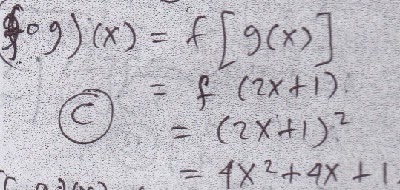 (f∘g)(x) = f[g(x)]
= f (2x+1)
C
= (2x+1)²
= 4x²+4x+1